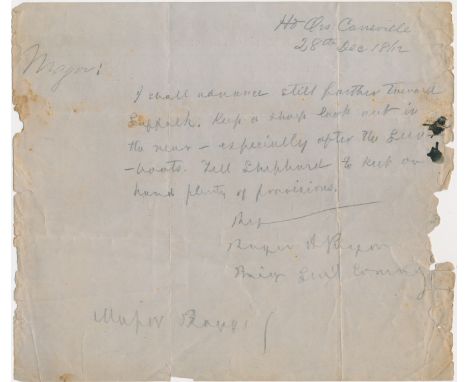 Hd Qrs. Carrsville
28th Dec 1862
Major:
I shall advance still farther toward
Suffolk. Keep a sharp look out in
the rear - especially after the Gun
-boats. Tell Shephard to keep on
hand plenty of provisions.
Roger A Pryor
Brig Genl Comdg
Major